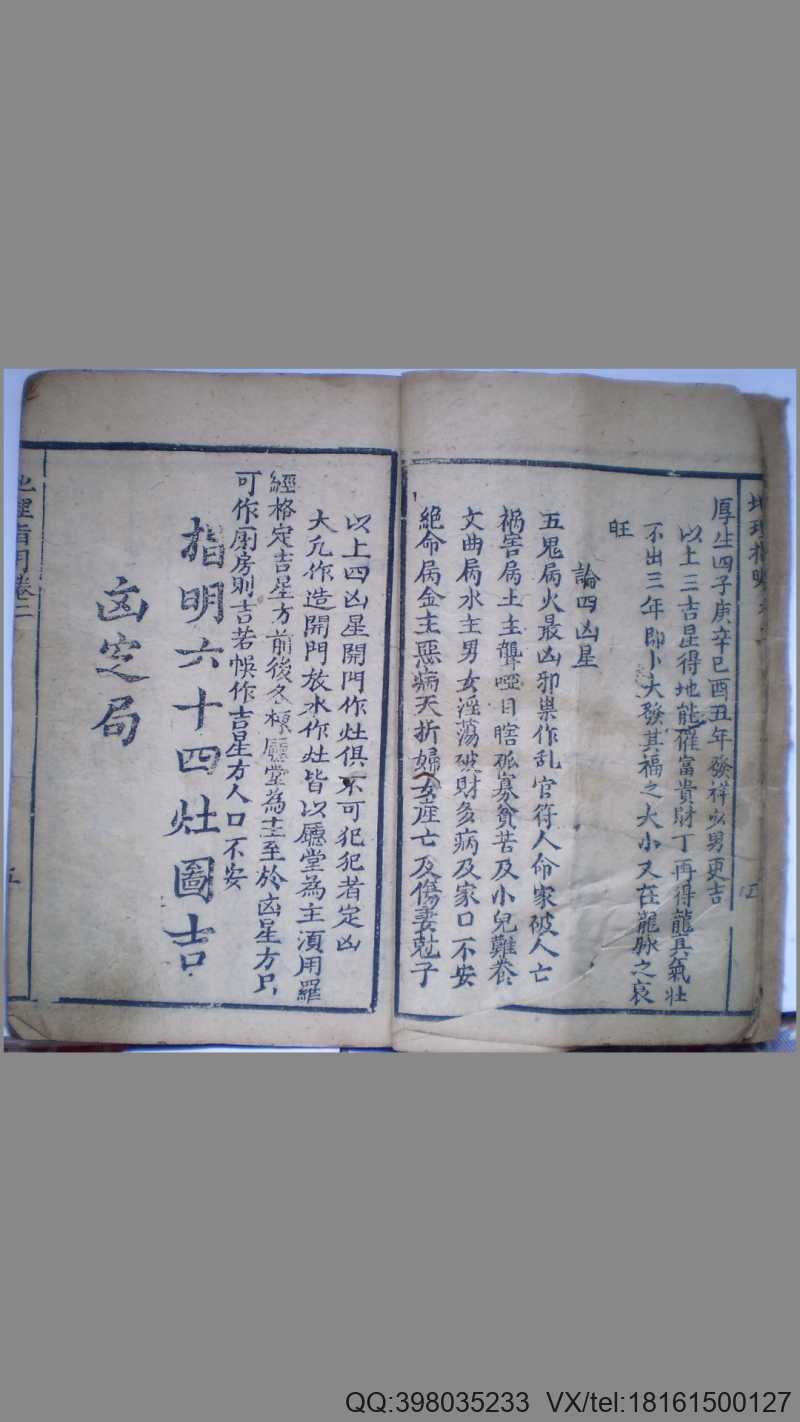 地理指明卷二
厚生四子庚辛巳酉丑年發祥少男更吉
以上三吉星得地能催富貴財丁再得龍真氣壯
不出三年即小大發其福之大小又在龍脉之衰
旺
論四凶星
五鬼屬火最凶邪巢作乱官符人命家破人亡
祸害屬土主聾啞目瞎孤寡貧苦及小兒難養
文曲屬水主男女淫蕩破財多病及家口不安
絶命屬金主惡病夭折婦女產亡及傷妻尅子
五
以上四凶星開門作灶俱不可犯犯者定凶
大凡作造開門放水作灶皆以廳堂為主湏用羅
經格定吉星方前後各棟廳堂為主至於凶星方只
可作厠房則吉若悞作吉星方人口不安
指明六十四灶圖吉
凶定局
地理指明卷二
五
QQ:398035233 VX/tel:18161500127